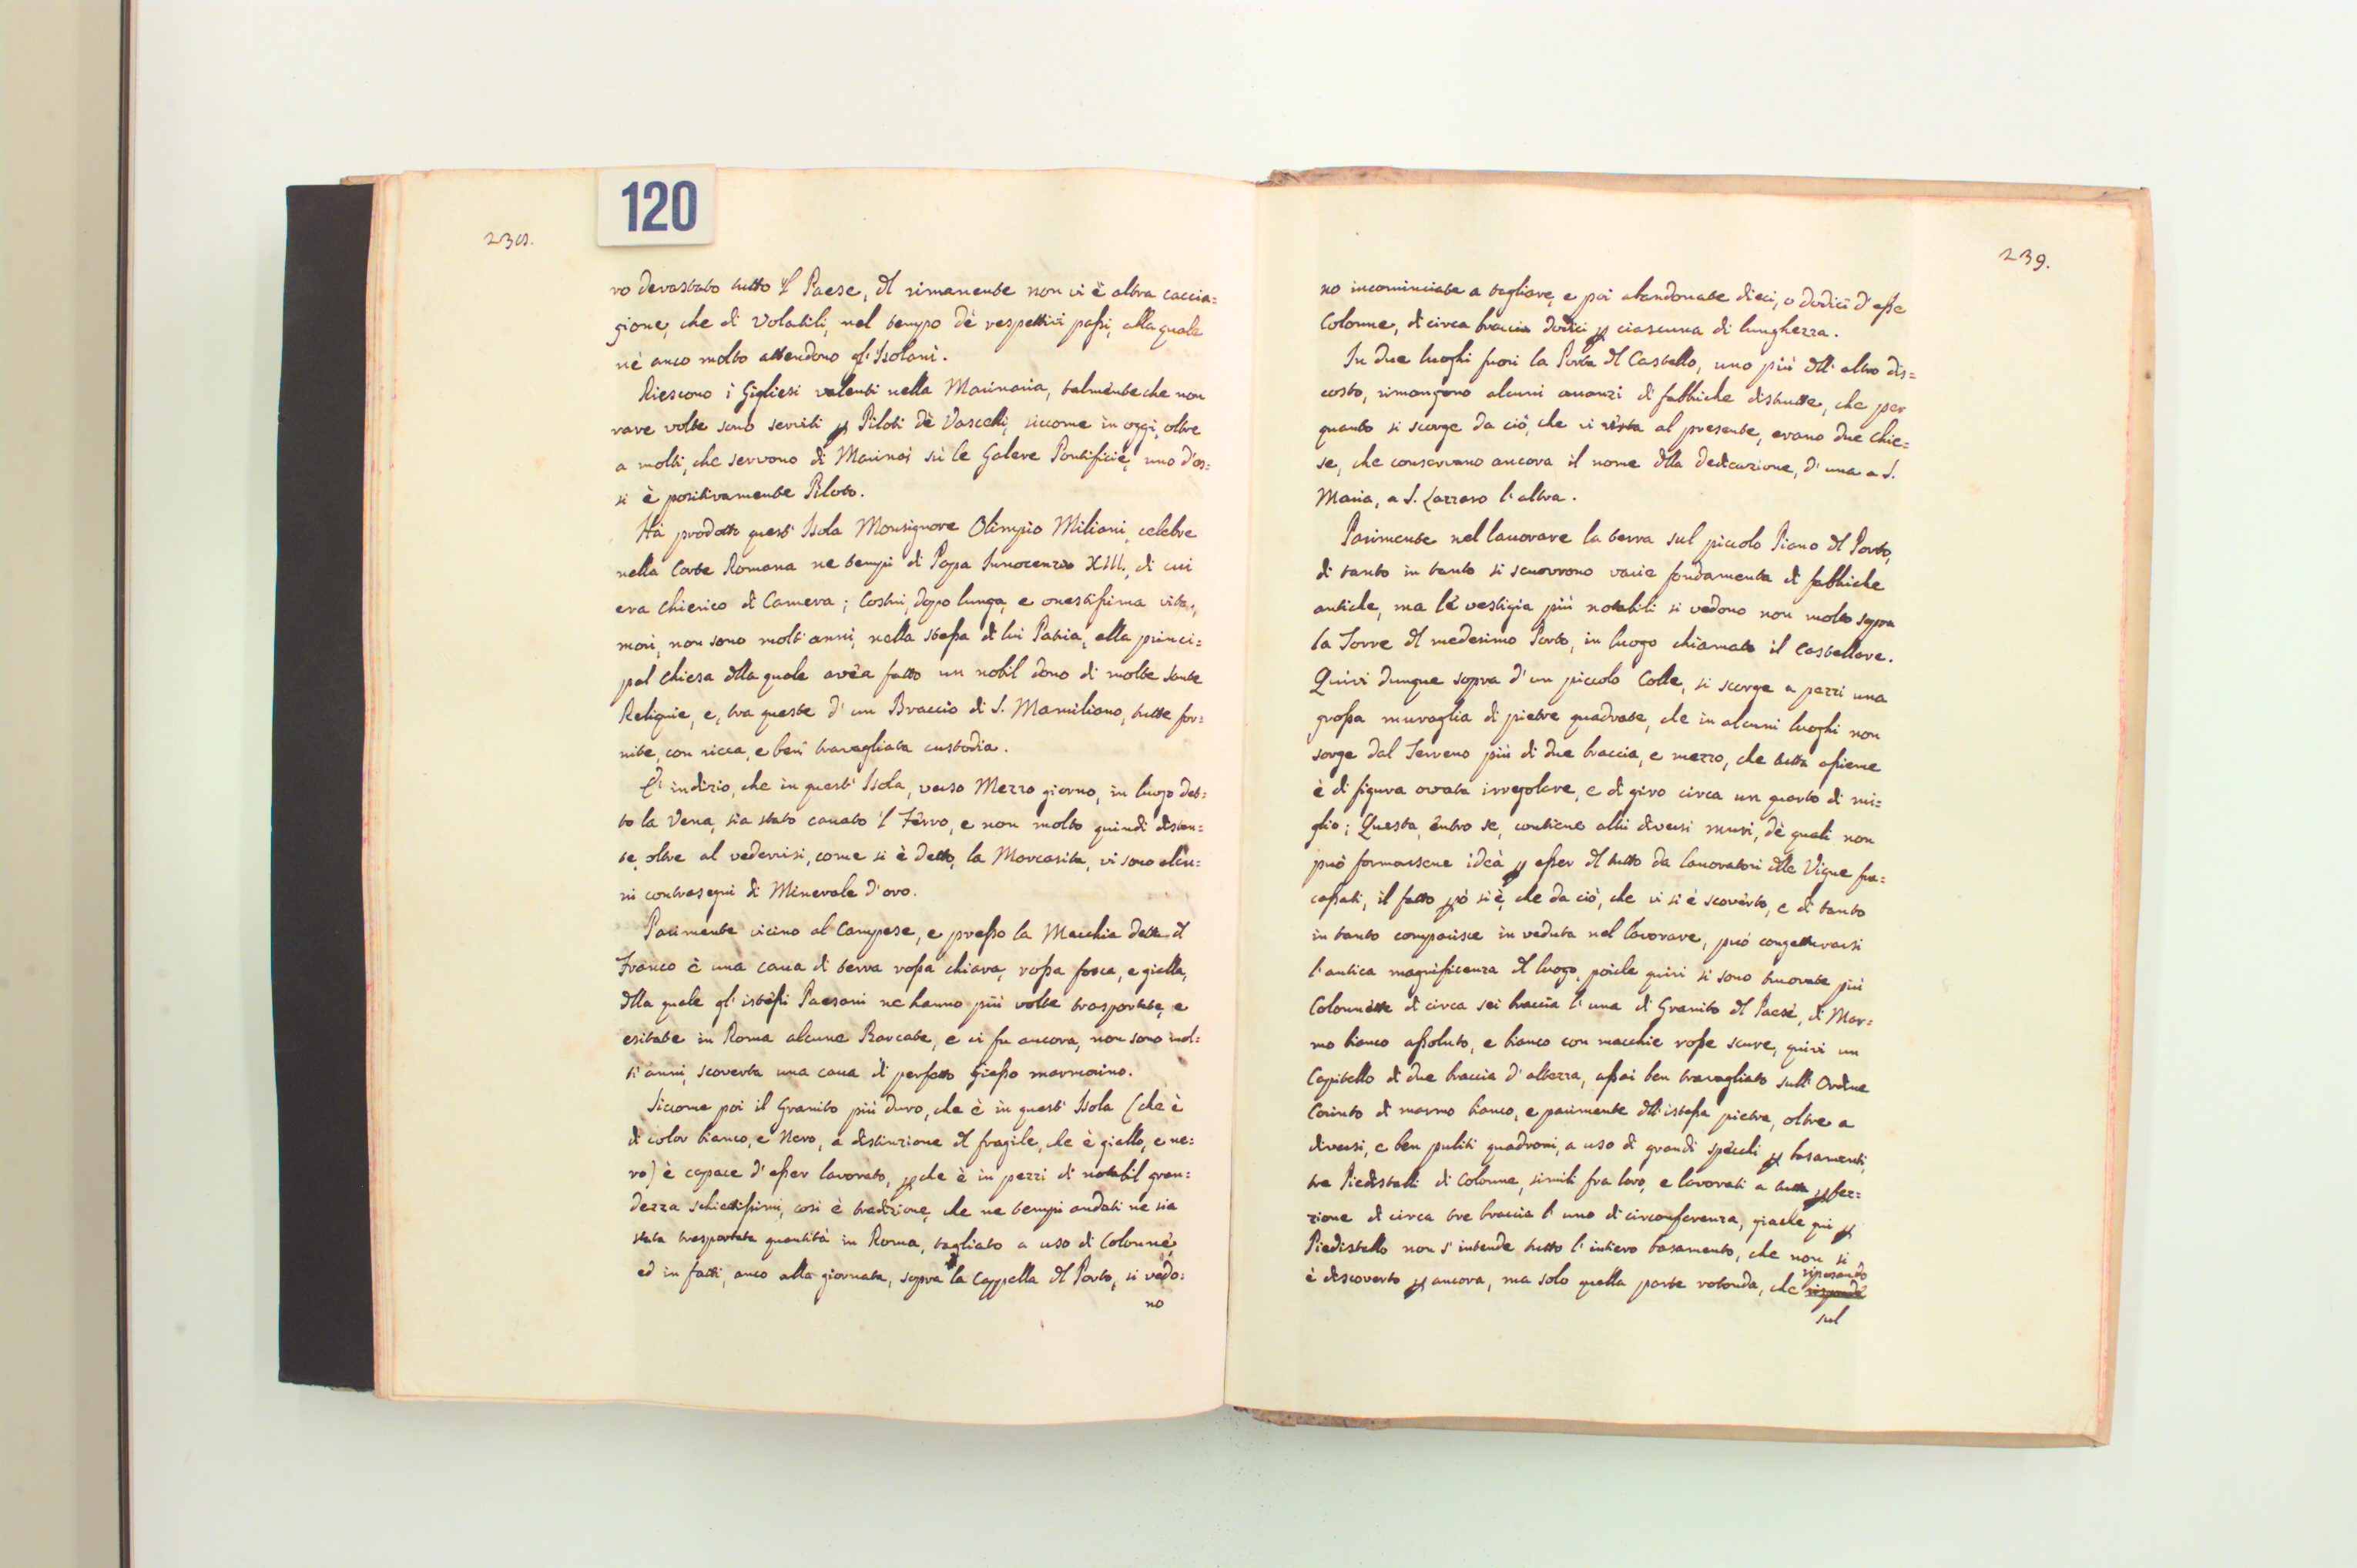 120
238.
ro devastato tutto 'l Paese, del rimanente non vi è altra caccia=
gione, che di Volatili, nel tempo dè respettivi passi, alla quale
nè anco molto attendono gl' Isolani.
Riescono i Gigliesi valenti nella Marinaria, talmenteche non
rare volte sono serviti p Piloti dè Vascelli, siccome in oggi, oltre
a molti, che servono di Marinai sù le Galere Pontificie, uno d'es=
si è positivamente Piloto.
Hà prodotto quest' Isola Monsignore Olimpio Miliani, celebre
nella Corte Romana ne tempi di Papa Innocenzio XIII., di cui
era Chierico di Camera; Costui, dopo lunga, e onestissima vita,
morì, non sono molt' anni, nella stessa di lui Patria, alla princi=
pal Chiesa dlla quale avéa fatto un nobil dono di molte sante
Reliquie, e, tra queste d' un Braccio di S. Mamiliano, tutte for=
nite, con ricca, e ben travagliata custodia.
E' indizio, che in quest' Isola, verso Mezzo giorno, in luogo det=
to la Vena, sia stato cauato 'l Ferro, e non molto quindi distan=
te, oltre al vedervisi, come si è detto, la Marcasita, vi sono alcu=
ni contrasegni di Minerale d'oro.
Parimente vicino al Campese, e presso la Macchia detta dl
Franco è una caua di terra rossa chiara, rossa fosca, e gialla,
dlla quale gl' istessi Paesani ne hanno più volte trasportate, e
esitate in Roma alcune Barcate, e vi fu ancora, non sono mol=
ti anni, scoverta una caua di perfetto Giesso marmorino.
Siccome poi il Granito più duro, che è in quest' Isola (che è
di color bianco, e Nero, a distinzione dl fragile, che è giallo, e ne=
ro) è capace d' esser lavorato, pche è in pezzi di notabil gran=
dezza schiettissimi, così è tradizione, che ne tempi andati ne sia
stata trasportata quantità in Roma, tagliato a uso di Colonne,
ed in fatti, anco alla giornata, sopra la Cappella dl Porto, si vedo=
no
239.
no incominciate a tagliare, e poi abandonate dieci, o dodici d' esse
Colonne, di circa braccia dodici p ciascuna di lunghezza.
In due luoghi fuori la Porta dl Castello, uno più dll' altro dis=
costo, rimangono alcuni avanzi di fabbriche distrutte, che per
quanto si scorge da ciò, che vi resta al presente, erano due Chie=
se, che conservano ancora il nome dlla dedicazione, d' una a S.
Maria, a S. Lazzaro l' altra.
Parimente nel lauorare la terra sul piccolo Piano dl Porto,
di tanto in tanto si scuovrono varie fondamenta di fabbriche
antiche, ma le vestigia più notabili si vedono non molto sopra
la Torre dl medesimo Porto, in luogo chiamato il Castellare.
Quivi dunque sopra d' un piccolo Colle, si scorge a pezzi una
grossa muraglia di pietre quadrate, che in alcuni luoghi non
sorge dal Terreno più di due braccia, e mezzo, che tutta assieme
è di figura ovata irregolare, e di giro circa un quarto di mi=
glio; Questa, entro se, contiene altri diversi muri, dè quali non
può formarsene ideà p esser dl tutto da lauoratori dlle Vigne fra=
cassati, il fatto pò si è, che da ciò, che vi si è scoverto, e di tanto
in tanto comparisce in veduta nel lavorare, può congetturarsi
l' antica magnificenza dl luogo, poiche quivi si sono truovate più
Colonnette di circa sei braccia l' una di Granito dl Paese, di Mar=
mo bianco assoluto, e bianco con macchie rosse scure, quivi un
Capitello di due braccia d' altezza, assai ben travagliato sull' Ordine
Corinto di marmo bianco, e parimente dll' istessa pietra, oltre a
diversi, e ben puliti quadroni, a uso di grandi specchi p basamenti,
tre Piedistalli di Colonna, simili fra loro, e lavorati a tutta pfez=
zione di circa tre braccia l' uno di circonferenza, giache qui p
Piedistallo non s' intende tutto l' intiero basamento, che non si
è discoverto p ancora, ma solo quella parte rotonda, che riposando
sul